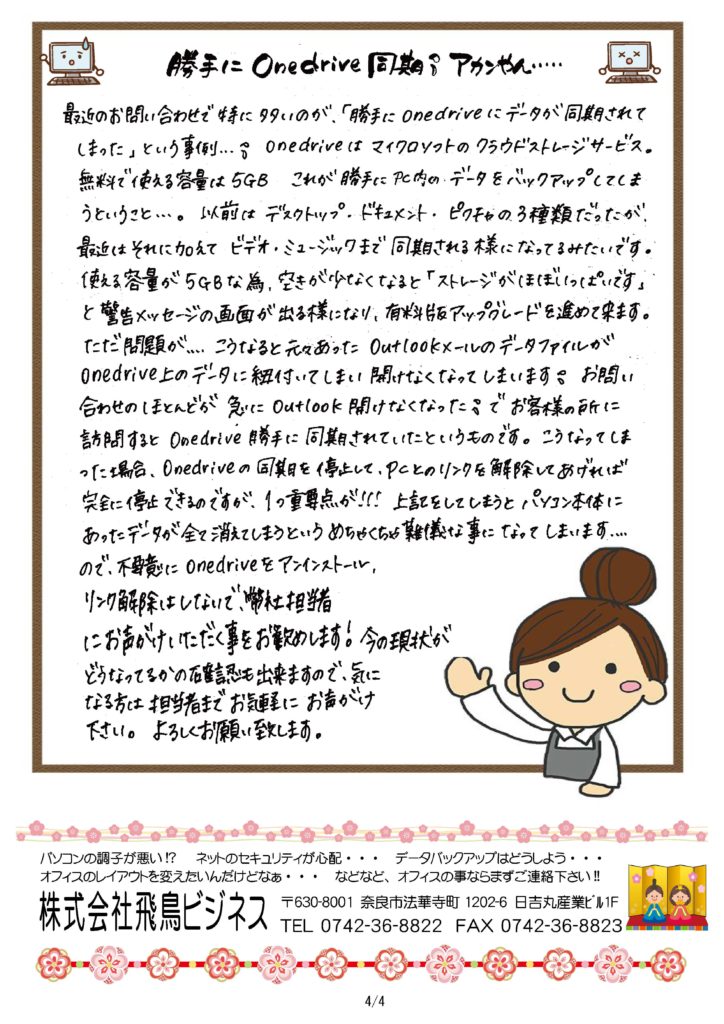 勝手に Onedrive 同期。アカンやん……
最近のお問い合わせで特に多いのが、「勝手にonedriveにデータが同期されて
しまった」という事例…。onedriveはマイクロソフトのクラウドストレージサービス。
無料で使える容量は5GB これが勝手にPC内のデータをバックアップしてしま
うということ…。以前はデスクトップ・ドキュメント・ピクチャの3種類だったが、
最近はそれに加えて ビデオ・ミュージックまで同期される様になってるみたいです。
使える容量が5GBな為、空きが少なくなると「ストレージがほぼいっぱいです」
と警告メッセージの画面が出る様になり、有料版アップグレードを進めて来ます。
ただ問題が…. こうなると元々あった Outlookメールのデータファイルが
Onedrive上のデータに紐付いてしまい開けなくなってしまいます。お問い
合わせのほとんどが 急にOutlook 開けなくなった。でお客様の所に
訪問すると Onedrive 勝手に同期されていたというものです。こうなってしま
った場合、Onedriveの同期を停止して、PCとのリンクを解除してあげれば
完全に停止できるのですが、1つ重要点が!!! 上記をしてしまうとパソコン本体に
あったデータが全て消えてしまうという めちゃくちゃ難儀な事になってしまいます….
ので、不用意にonedriveをアンインストール,
リンク解除はしないで、弊社担当者
にお声がけいただく事をお歓めします! 今の現状が
どうなってるかの確認も出来ますので、気に
なる方は 担当者までお気軽に お声がけ
下さい。よろしくお願い致します。
パソコンの調子が悪い!? ネットのセキュリティが心配・・・ データバックアップはどうしよう・・・
オフィスのレイアウトを変えたいんだけどなぁ・・・ などなど、オフィスの事ならまずご連絡下さい!!
株式会社飛鳥ビジネス 〒630-8001 奈良市法華寺町 1202-6 日吉丸産業ビル1F
TEL 0742-36-8822 FAX 0742-36-8823
4/4